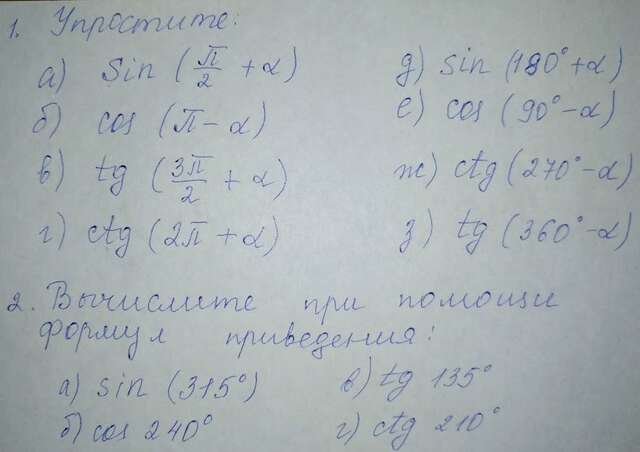 1. Упростите:
а) sin (π/2 + α)
б) cos (π - α)
в) tg (3π/2 + α)
г) ctg (2π + α)
д) sin (180° + α)
е) cos (90° - α)
ж) ctg (270° - α)
з) tg (360° - α)
2. Вычислите при помощи
формул приведения:
а) sin (315°)
б) cos 240°
в) tg 135°
г) ctg 210°